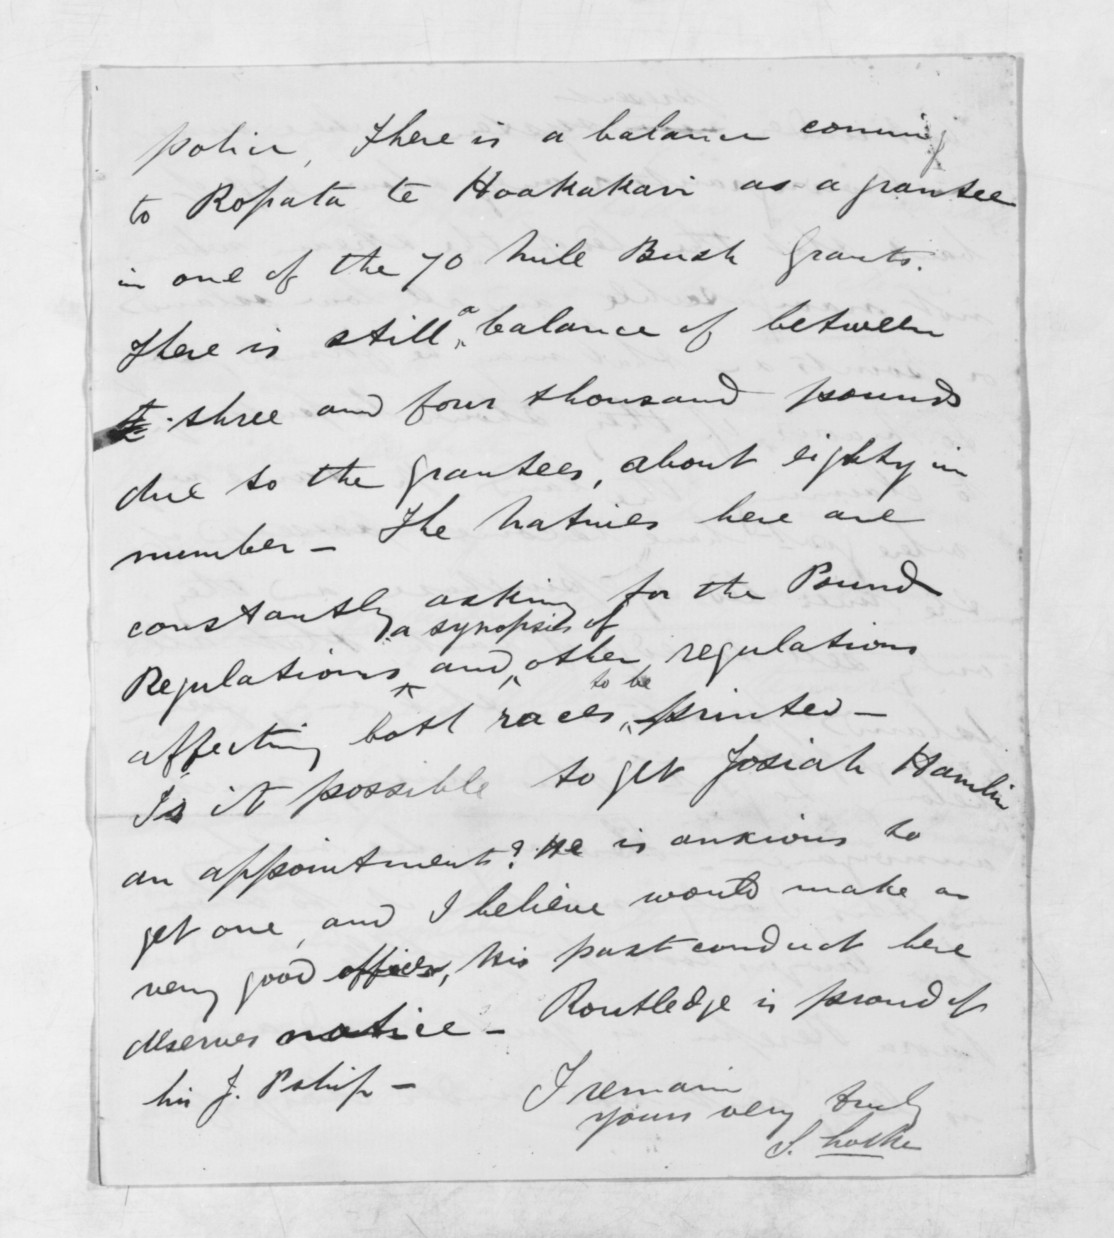 police, There is a balance coming
to Ropata te Hoakakari as a grantee
in one of the 70 Mile Bush Grants.
There is still a balance of between
three and four thousand pounds
due to the grantees, about eighty in
number — The Natives here are
constantly asking for the Pound
Regulations and a synopsis of other regulations
affecting both races, to be printed —
Is it possible to get Josiah Hamlin
an appointment? He is anxious to
get one, and I believe would make a
very good officer, his past conduct here
deserves notice — Routledge is proud of
his J. Pship —
I remain
yours very truly
S. Locke